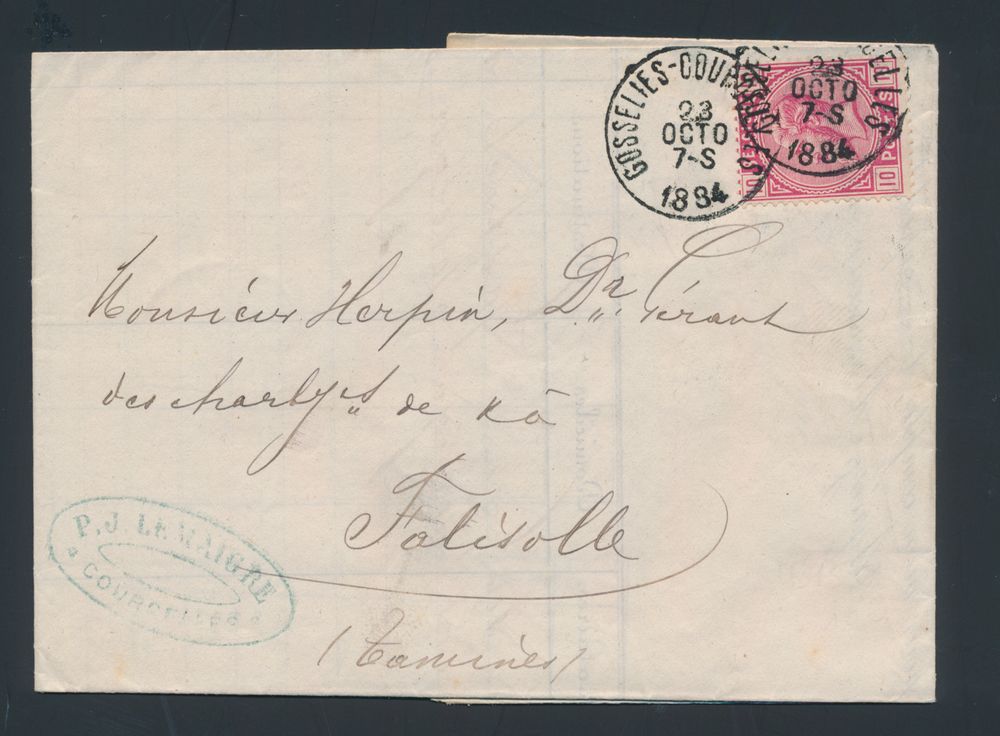 GOSSELIES-COURCELLES
23
OCTO
7-S
1884
23
OCTO
7-S
1884
10 POSTES 10
Monsieur Herpin, Dr. Gérant
des charb.ges de
Falisolle
(Tamines)
P. J. LEMAIGRE
COURCELLES